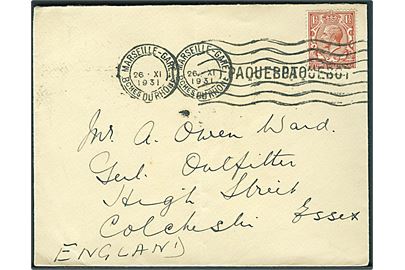 MARSEILLE-GARE
26 · XI
1931
BCHES DU RHONE
MARSEILLE-GARE
26 · XI
1931
BCHES DU RHONE
PAQUEBOT
Mr A. Owen Ward.
Genl. Outfitter
High Street
Colchester Essex
ENGLAND